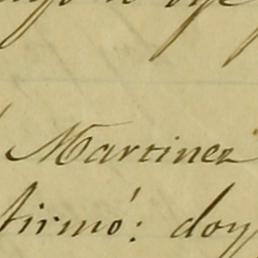 Martinez
firmó: doy